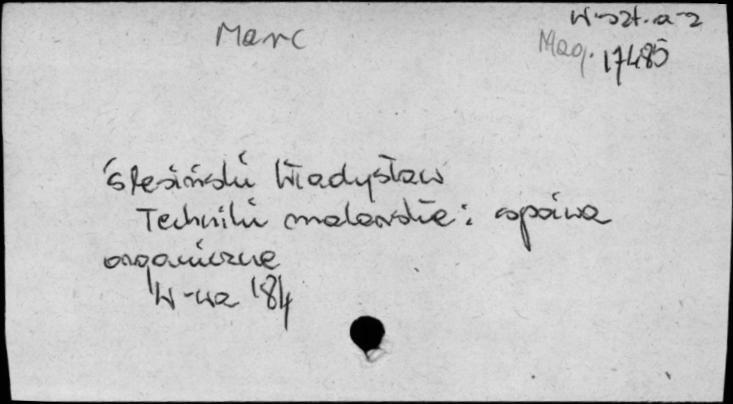 W-szt. a-z
Marc
Mag. 17485
Ślesiński Władysław
Techniki malarskie: spoiwa
organiczne
W-wa '84